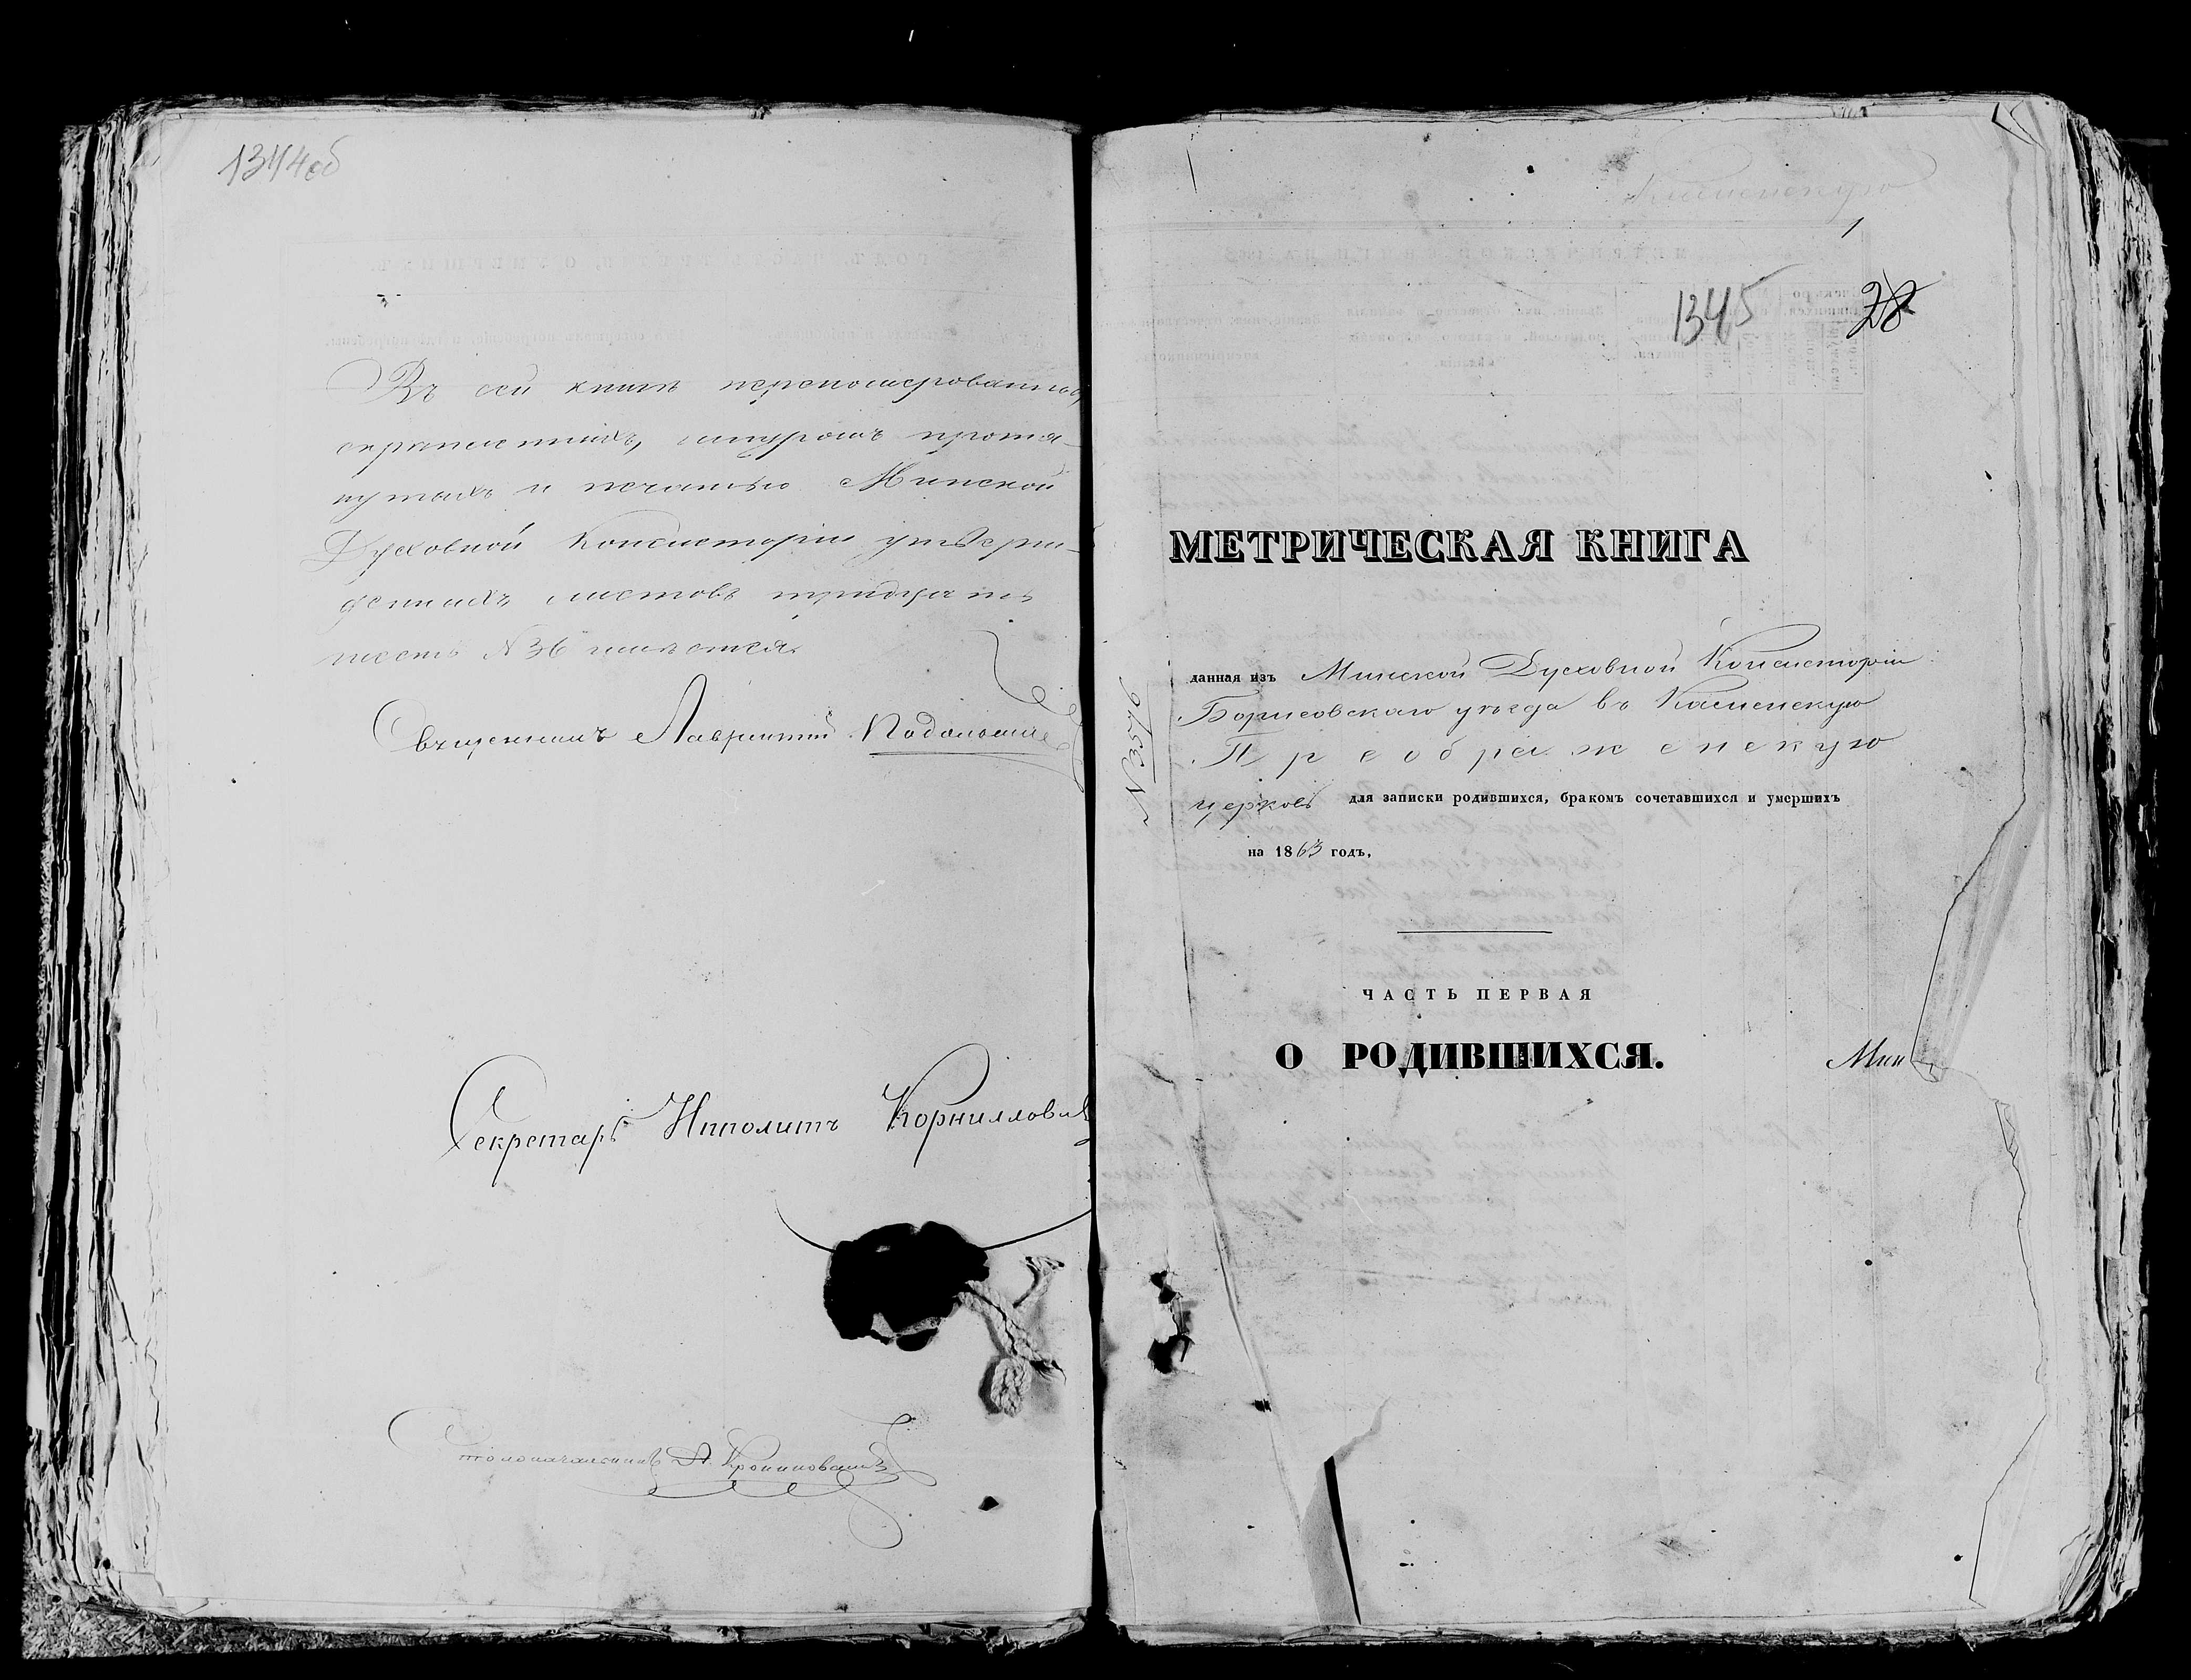 1344об
Въ сей книгѣ переномерованныхъ
скрепленныхъ, шнуромъ протя-
нутыхъ и печатью Минской
Духовной Консисторіи утверж-
денныхъ листовъ тридцать
шесть N 36 имѣется.
Священникъ Лаврентій
Секретарь Ипполитъ Корнилови
Столоначальникъ
Каменскую
1
1345 28
МЕТРИЧЕСКАЯ КНИГА
данная изъ Минской Духовной Консисторіи
Борисовскаго уѣзда въ Каменскую
Преображенскую
церковь для записки родившихся, бракомъ сочетавшихся и умершихъ
на 1863 годъ,
ЧАСТЬ ПЕРВАЯ
О РОДИВШИХСЯ.
Мин